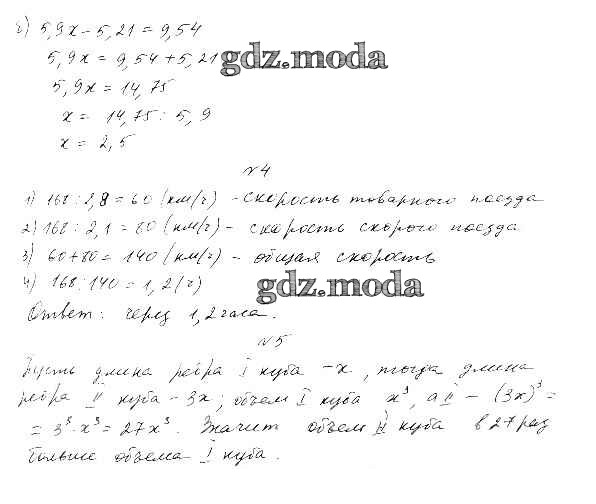 г) 5,9x - 5,21 = 9,54
5,9x = 9,54 + 5,21
gdz.moda
5,9x = 14,75
x = 14,75 : 5,9
x = 2,5
№4
1) 168 : 2,8 = 60 (км/ч) - скорость товарного поезда
2) 168 : 2,1 = 80 (км/ч) - скорость скорого поезда
3) 60 + 80 = 140 (км/ч) - общая скорость
4) 168 : 140 = 1,2 (ч)
gdz.moda
Ответ: через 1,2 часа.
№5
Пусть длина ребра I куба - x, тогда длина
ребра II куба - 3x; объем I куба x³, а II - (3x)³ =
= 3³·x³ = 27x³. Значит объем II куба в 27 раз
больше объема I куба.